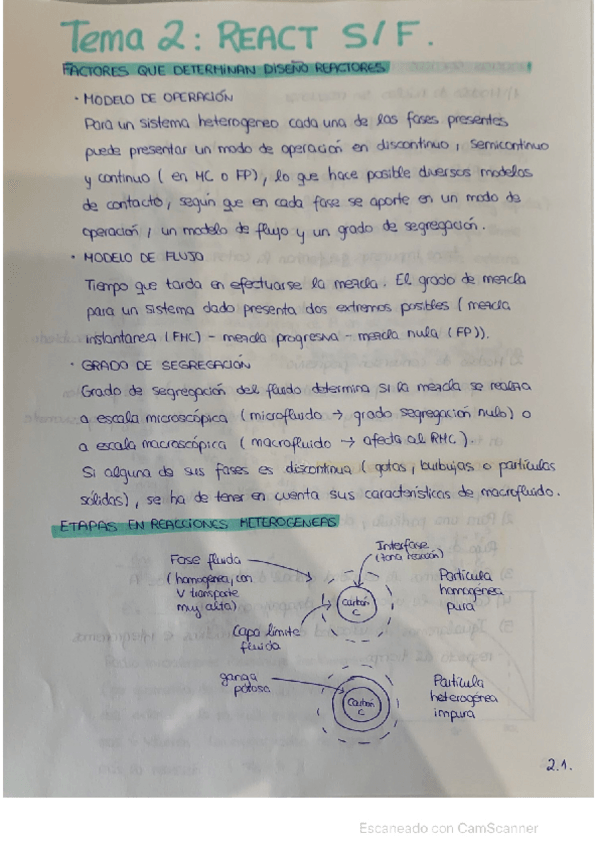 Tema 2: REACT S/F.
FACTORES QUE DETERMINAN DISEÑO REACTORES
· MODELO DE OPERACIÓN
Para un sistema heterogeneo cada una de las fases presentes
puede presentar un modo de operación en discontinuo, semicontinuo
y continuo (en MC o FP), lo que hace posible diversos modelos
de contacto, según que en cada fase se aporte en un modo de
operación, un modelo de flujo y un grado de segregación.
· MODELO DE FLUJO
Tiempo que tarda en efectuarse la mezcla. El grado de mezcla
para un sistema dado presenta dos extremos posibles (mezcla
instantanea (FMC) - mezcla progresiva - mezcla nula (FP)).
· GRADO DE SEGREGACIÓN
Grado de segregación del fluido determina si la mezcla se realiza
a escala microscópica (microfluido → grado segregación nulo) o
a escala macroscópica (macrofluido → afecta al RMC).
Si alguna de sus fases es discontinua (gotas, burbujas o partículas
sólidas), se ha de tener en cuenta sus características de macrofluido.
ETAPAS EN REACCIONES HETEROGENEAS
Fase fluida
(homogénea, con
V transporte
muy alta)
Interfase
(zona reacción)
Carbón
C
Partícula
homogénea
pura
Capa límite
fluida
ganga
porosa
Carbón
C
Partícula
heterogénea
impura
2.1.
Escaneado con CamScanner